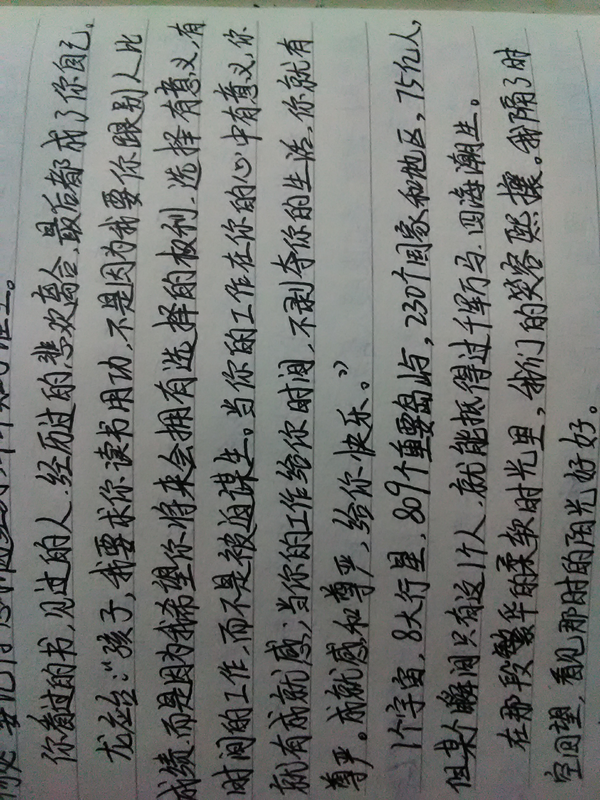 你看过的书,见过的人,经历过的悲欢离合,最后都成了你自己。
龙应台:“孩子,我要求你读书用功,不是因为我要你跟别人比
成绩,而是因为我希望你将来会拥有选择的权利,选择有意义,有
时间的工作,而不是被迫谋生。当你的工作在你的心中有意义,你
就有成就感;当你的工作给你时间,不剥夺你的生活,你就有
尊严。成就感和尊严,给你快乐。”
1个宇宙,8大行星,809个重要岛屿,230个国家和地区,75亿人,
但某个瞬间只有这1个人,就能抵得过千军万马,四海潮生。
在那段繁华的柔软时光里,我们的笑容熙攘。我隔了时
空回望,看见那时的阳光好好。